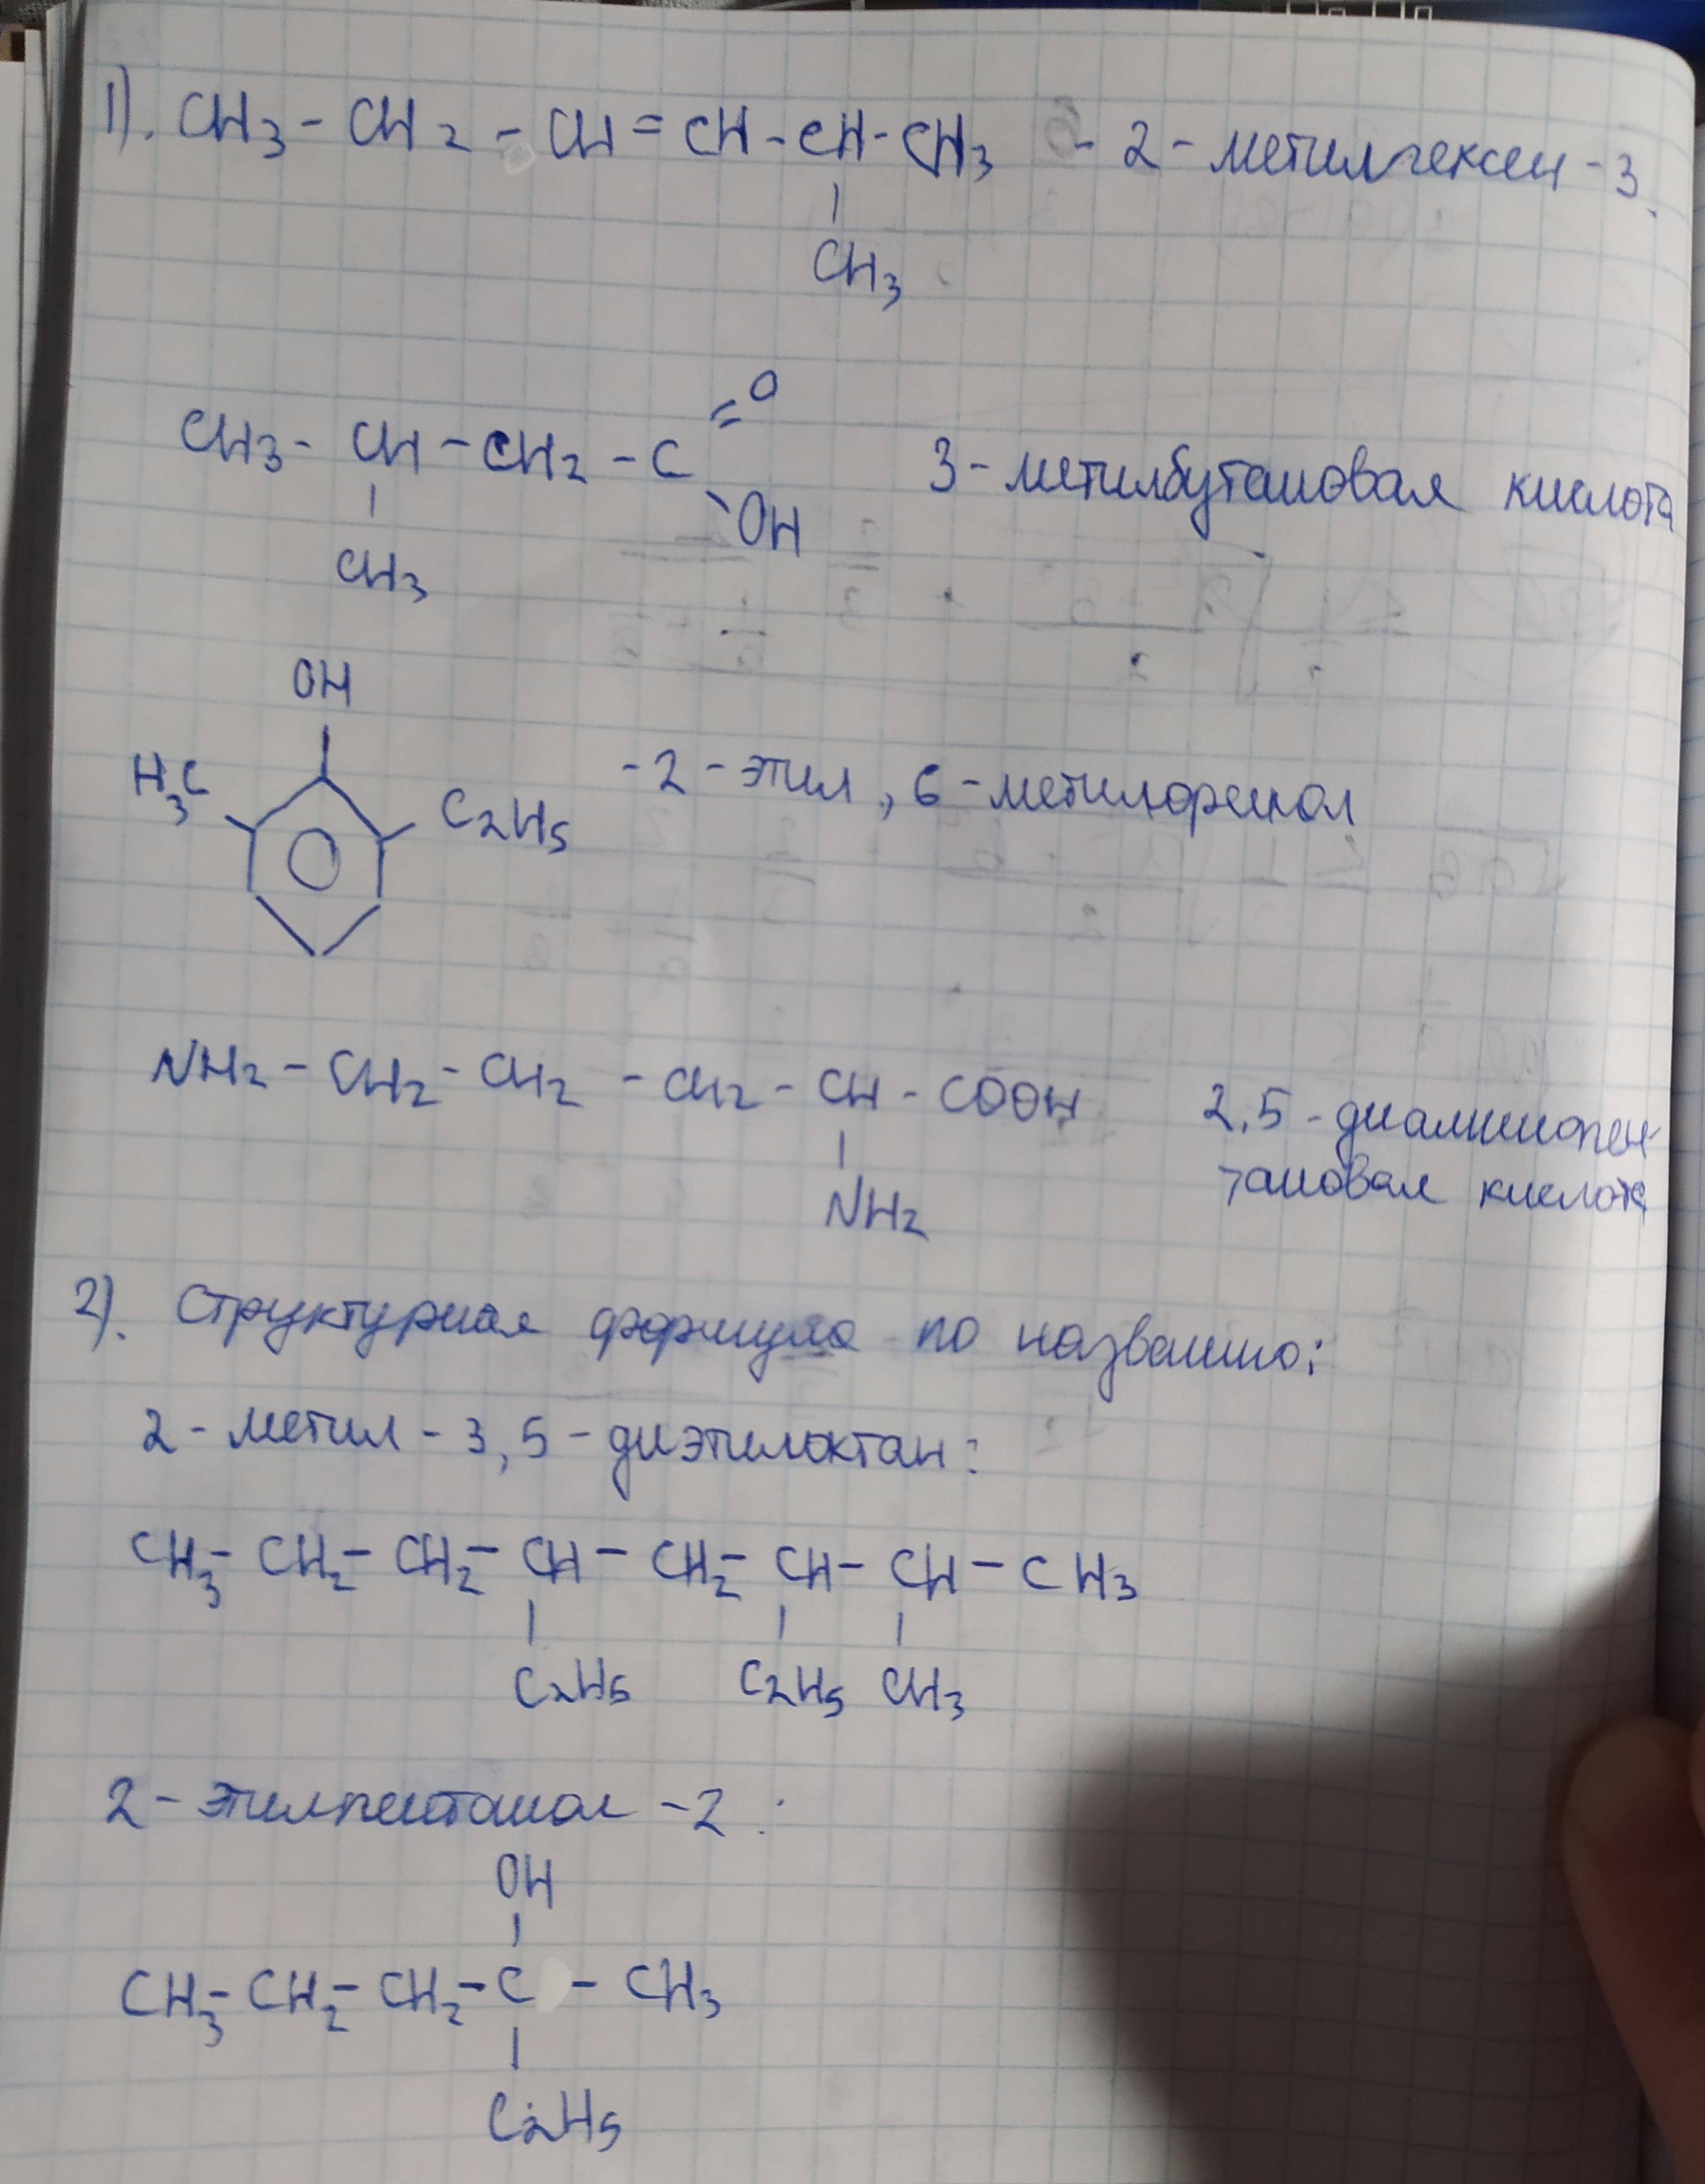 1). CH3 - CH2 - CH = CH - CH - CH3 - 2 - метилгексен - 3.
CH3
=O
CH3 - CH - CH2 - C 3 - метилбутановая кислота
OH
CH3
OH
H3C C2H5 - 2 - этил, 6 - метилфенол
NH2 - CH2 - CH2 - CH2 - CH - COOH 2,5 - диаминопен-
NH2 тановая кислота
2). Структурная формула по названию:
2 - метил - 3,5 - диэтилоктан:
CH3 - CH2 - CH2 - CH - CH2 - CH - CH - CH3
C2H5 C2H5 CH3
2 - этилпентанол - 2:
OH
CH3 - CH2 - CH2 - C - CH3
C2H5